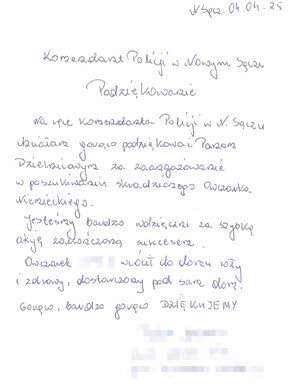 N. Sącz. 04.04-25
Komendant Policji w Nowym Sączu
Podziękowanie
Na ręce Komendanta Policji w N. Sączu
chciałam gorąco podziękować Panom
Dzielnicowym za zaangażowanie
w poszukiwaniu skradzionego Owczarka
Niemieckiego.
Jesteśmy bardzo wdzięczni za szybką
akcję zakończoną sukcesem.
Owczarek wrócił do domu cały
i zdrowy, dostarczony pod sam dom.
Gorąco, bardzo gorąco DZIĘKUJEMY